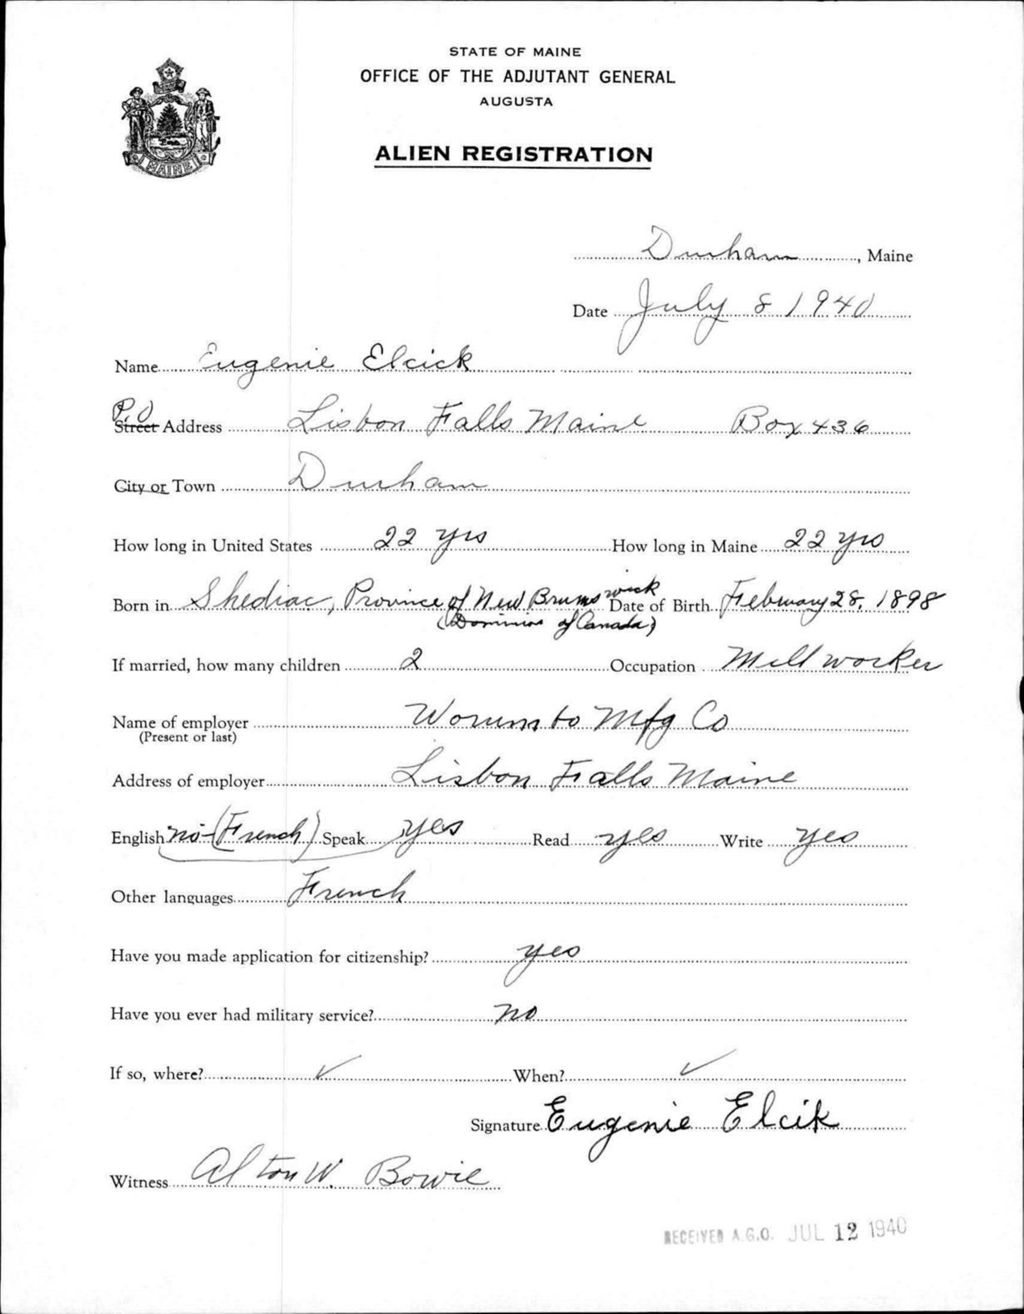 STATE OF MAINE
OFFICE OF THE ADJUTANT GENERAL
AUGUSTA
ALIEN REGISTRATION
MAINE
Durham, Maine
Date July 8 1940
Name Eugenie Elcick
P.O. Street Address Lisbon Falls Maine Box 436
City or Town Durham
How long in United States 22 yrs How long in Maine 22 yrs
Born in Shediac, Province of New Brunswick Date of Birth February 28, 1898
(Dominion of Canada)
If married, how many children 2 Occupation Mill worker
Name of employer Worumbo Mfg Co
(Present or last)
Address of employer Lisbon Falls Maine
English no-(French) Speak yes Read yes Write yes
Other languages French
Have you made application for citizenship? yes
Have you ever had military service? no
If so, where? ✓ When? ✓
Signature Eugenie Elcik
Witness Alton W. Bowie
RECEIVED A.G.O. JUL 12 1940